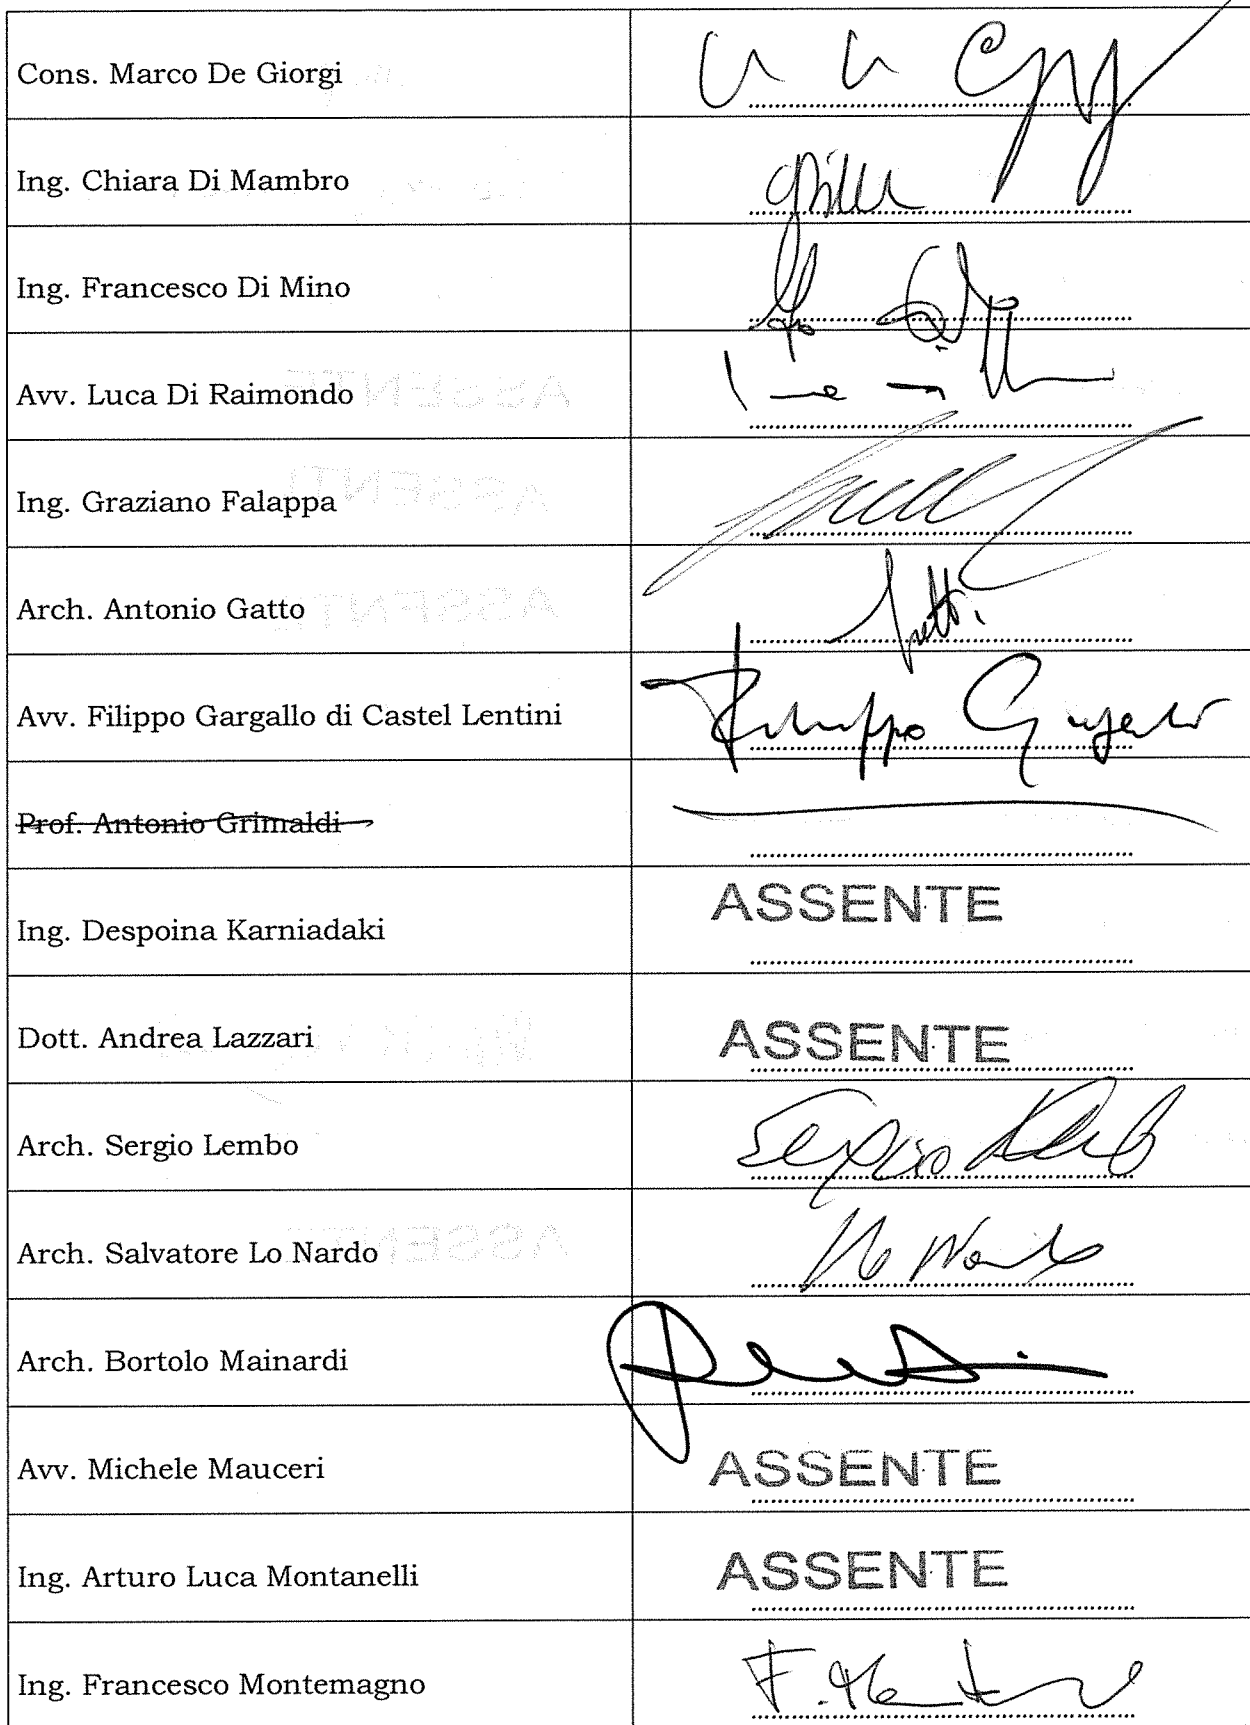 Cons. Marco De Giorgi
Ing. Chiara Di Mambro
Ing. Francesco Di Mino
Avv. Luca Di Raimondo
Ing. Graziano Falappa
Arch. Antonio Gatto
Avv. Filippo Gargallo di Castel Lentini
Filippo Gargallo
Prof. Antonio Grimaldi
Ing. Despoina Karniadaki
ASSENTE
Dott. Andrea Lazzari
ASSENTE
Arch. Sergio Lembo
Sergio
Arch. Salvatore Lo Nardo
Arch. Bortolo Mainardi
Avv. Michele Mauceri
ASSENTE
Ing. Arturo Luca Montanelli
ASSENTE
Ing. Francesco Montemagno